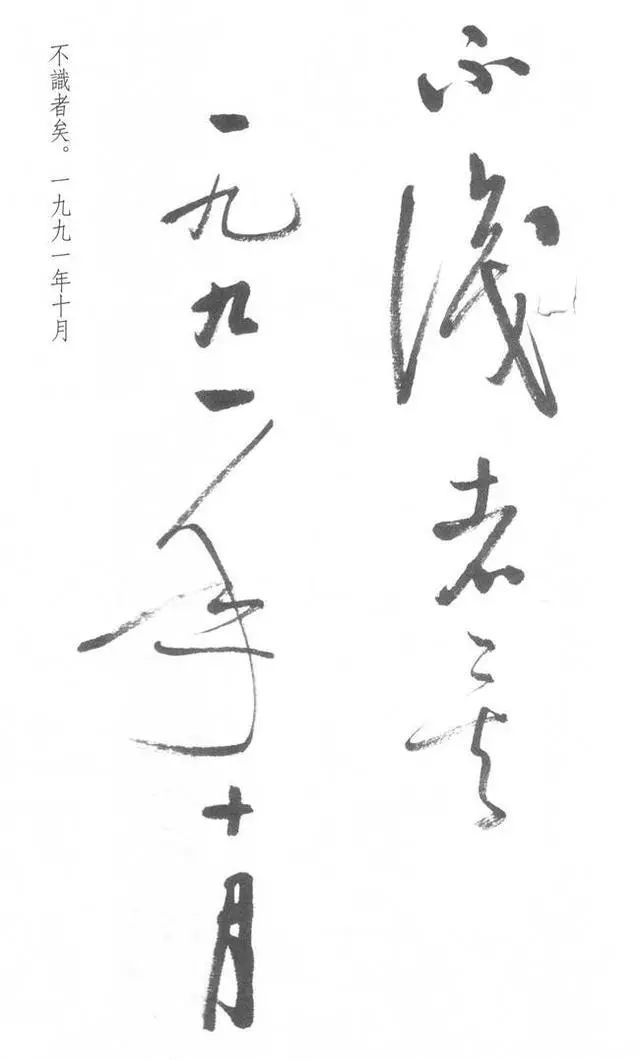 不識者矣
一九九一年十月
不識者矣。一九九一年十月